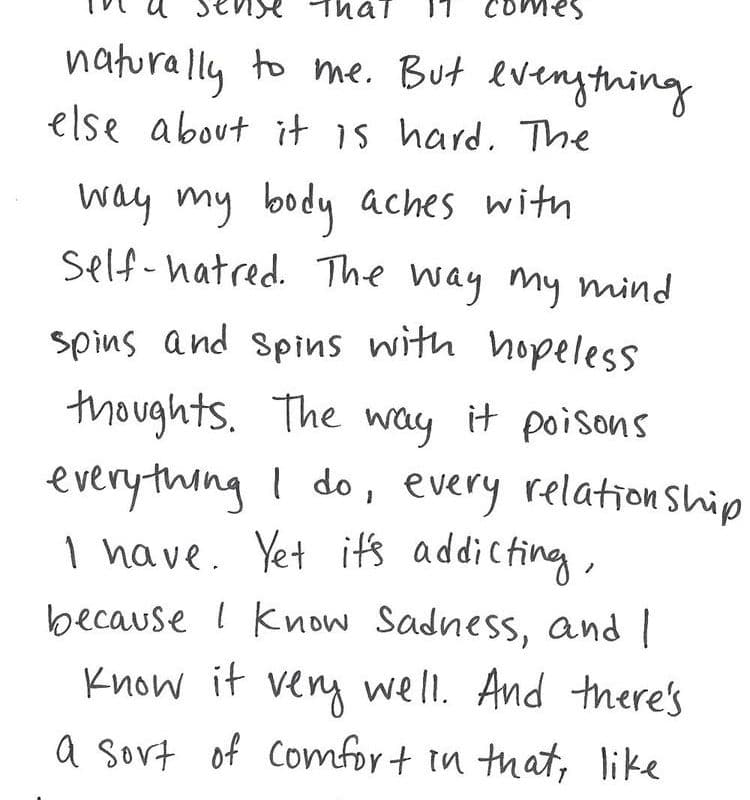 in a sense that it comes
naturally to me. But everything
else about it is hard. The
way my body aches with
self-hatred. The way my mind
spins and spins with hopeless
thoughts. The way it poisons
everything I do, every relationship
I have. Yet it's addicting,
because I know sadness, and I
know it very well. And there's
a sort of comfort in that, like